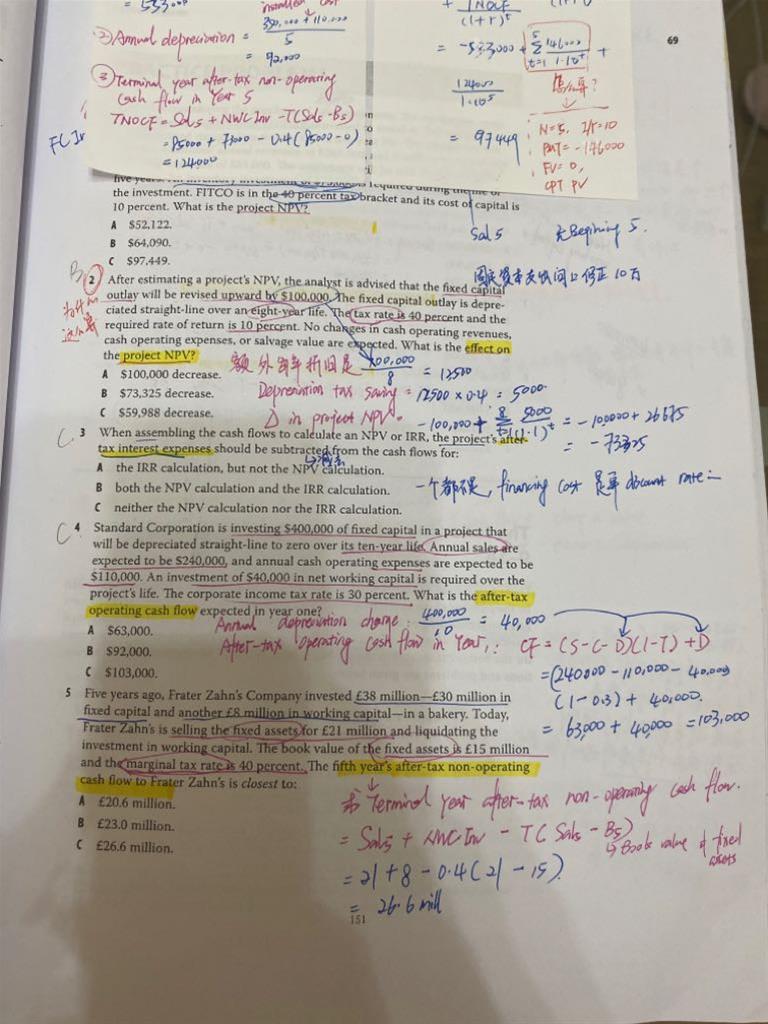 = 533000
installed cost
② Annual depreciation = 350,000 + 110,000 / 5
= 92,000
③ Terminal year after-tax non-operating
cash flow in Year 5
TNOCF = Sal5 + NWCInv - T(Sal5 - B5)
= 85000 + 73000 - 0.4(85000-0)
= 124000
FCIn
+ TNOCF / (1+r)^t
= -533000 + 5 Σ t=1 146000 / 1.10^t +
124000 / 1.10^5
= 97449
怎么算?
N=5, I/Y=10
PMT = -146000
FV=0,
CPT PV
69
five years.
the investment. FITCO is in the 40 percent tax bracket and its cost of capital is
10 percent. What is the project NPV?
A $52,122.
B $64,090.
C $97,449.
Sal 5
Begining 5.
B
2 After estimating a project's NPV, the analyst is advised that the fixed capital
outlay will be revised upward by $100,000. The fixed capital outlay is depre-
ciated straight-line over an eight-year life. The tax rate is 40 percent and the
required rate of return is 10 percent. No changes in cash operating revenues,
cash operating expenses, or salvage value are expected. What is the effect on
the project NPV?
A $100,000 decrease.
B $73,325 decrease.
C $59,988 decrease.
固定资本支出向上修正10万
为什么
这么算
额外每年折旧是 100,000 / 8 = 12500
Depreciation tax saving = 12500 × 0.4 = 5000
Δ in project NPV = -100,000 + 8 Σ t=1 5000 / (1.1)^t = -100000 + 26675
= -73325
C
3 When assembling the cash flows to calculate an NPV or IRR, the project's after-
tax interest expenses should be subtracted from the cash flows for:
A the IRR calculation, but not the NPV calculation.
B both the NPV calculation and the IRR calculation.
C neither the NPV calculation nor the IRR calculation.
一个都不是, financing cost discount rate
C
4 Standard Corporation is investing $400,000 of fixed capital in a project that
will be depreciated straight-line to zero over its ten-year life. Annual sales are
expected to be $240,000, and annual cash operating expenses are expected to be
$110,000. An investment of $40,000 in net working capital is required over the
project's life. The corporate income tax rate is 30 percent. What is the after-tax
operating cash flow expected in year one?
A $63,000.
B $92,000.
C $103,000.
Annual depreciation charge: 400,000 / 10 = 40,000
After-tax operating cash flow in Year1: CF = (S-C-D)(1-T) + D
= (240000 - 110,000 - 40,000)
(1-0.3) + 40,000.
= 63,000 + 40,000 = 103,000
5 Five years ago, Frater Zahn's Company invested £38 million—£30 million in
fixed capital and another £8 million in working capital—in a bakery. Today,
Frater Zahn's is selling the fixed assets for £21 million and liquidating the
investment in working capital. The book value of the fixed assets is £15 million
and the marginal tax rate is 40 percent. The fifth year's after-tax non-operating
cash flow to Frater Zahn's is closest to:
A £20.6 million.
B £23.0 million.
C £26.6 million.
Terminal year after-tax non-operating cash flow.
= Sal5 + NWCInv - T(Sal5 - B5)
↳ Book value of fixed
assets
= 21 + 8 - 0.4(21 - 15)
= 26.6 mill
151